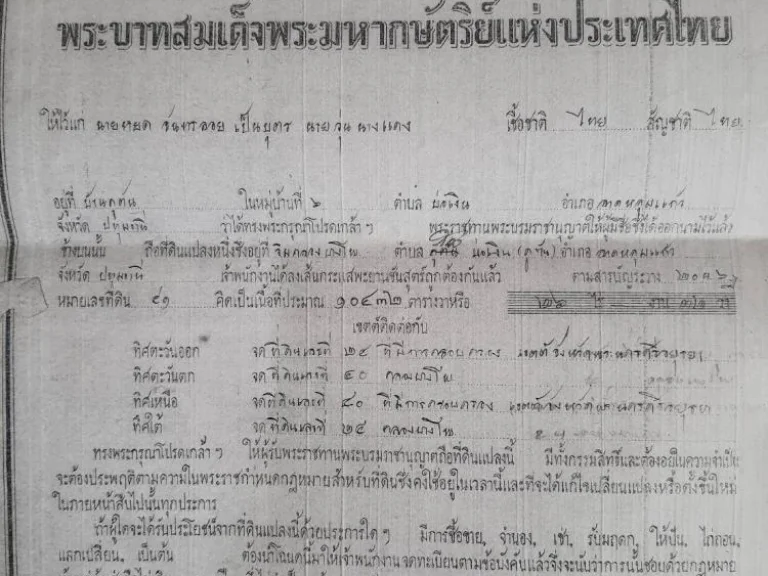 พระบาทสมเด็จพระมหากษัตริย์แห่งประเทศไทย
ให้ไว้แก่ นาย จันทรลอย เป็นบุตร นาย นางแดง เชื้อชาติ ไทย สัญชาติ ไทย
อยู่ที่ ในหมู่บ้านที่ ๖ ตำบล บ่อเงิน อำเภอ ลาดหลุมแก้ว
จังหวัด ปทุมธานี ว่าได้ทรงพระกรุณาโปรดเกล้า ฯ พระราชทานพระบรมราชานุญาตให้ผู้มีชื่อซึ่งได้ออกนามไว้แล้ว
ข้างบนนั้น ถือที่ดินแปลงหนึ่งซึ่งอยู่ที่ ริมคลองบางโพ ตำบล บ่อเงิน อำเภอ ลาดหลุมแก้ว
จังหวัด ปทุมธานี เจ้าพนักงานได้ลงเส้นกระแสพะยานชันสูตร์ถูกต้องกันแล้ว ตามสารบัญระวาง
หมายเลขที่ดิน ๔๑ คิดเป็นเนื้อที่ประมาณ ๑๐๔๓๒ ตารางวาหรือ ๒๖ ไร่ งาน ๓๒ วา
เขตต์ติดต่อกับ
ทิศตะวันออก จด ที่ดินเลขที่ ๒๕ ที่มีการครอบครอง เขตต์จังหวัดพระนครศรีอยุธยา
ทิศตะวันตก จด ที่ดินเลขที่ ๔๐ คลองบางโพ
ทิศเหนือ จด ที่ดินเลขที่ ๔๐ ที่มีการครอบครอง
ทิศใต้ จด ที่ดินเลขที่ ๒๕ คลองบางโพ
ทรงพระกรุณาโปรดเกล้า ฯ ให้ผู้รับพระราชทานพระบรมราชานุญาตถือที่ดินแปลงนี้ มีทั้งกรรมสิทธิ์และต้องอยู่ในความจำเป็น
จะต้องประพฤติตามความในพระราชกำหนดกฎหมายสำหรับที่ดินซึ่งคงใช้อยู่ในเวลานี้และที่จะได้แก้ไขเปลี่ยนแปลงหรือตั้งขึ้นใหม่
ในภายหน้าสืบไปนั้นทุกประการ
ถ้าผู้ใดจะได้รับประโยชน์จากที่ดินแปลงนี้ด้วยประการใด ๆ มีการซื้อขาย, จำนอง, เช่า, รับมฤดก, ให้ปัน, ไถ่ถอน,
แลกเปลี่ยน, เป็นต้น ต้องนำโฉนดนี้มาให้เจ้าพนักงานจดทะเบียนตามข้อบังคับแล้วจึ่งจะนับว่าการนั้นชอบด้วยกฎหมาย